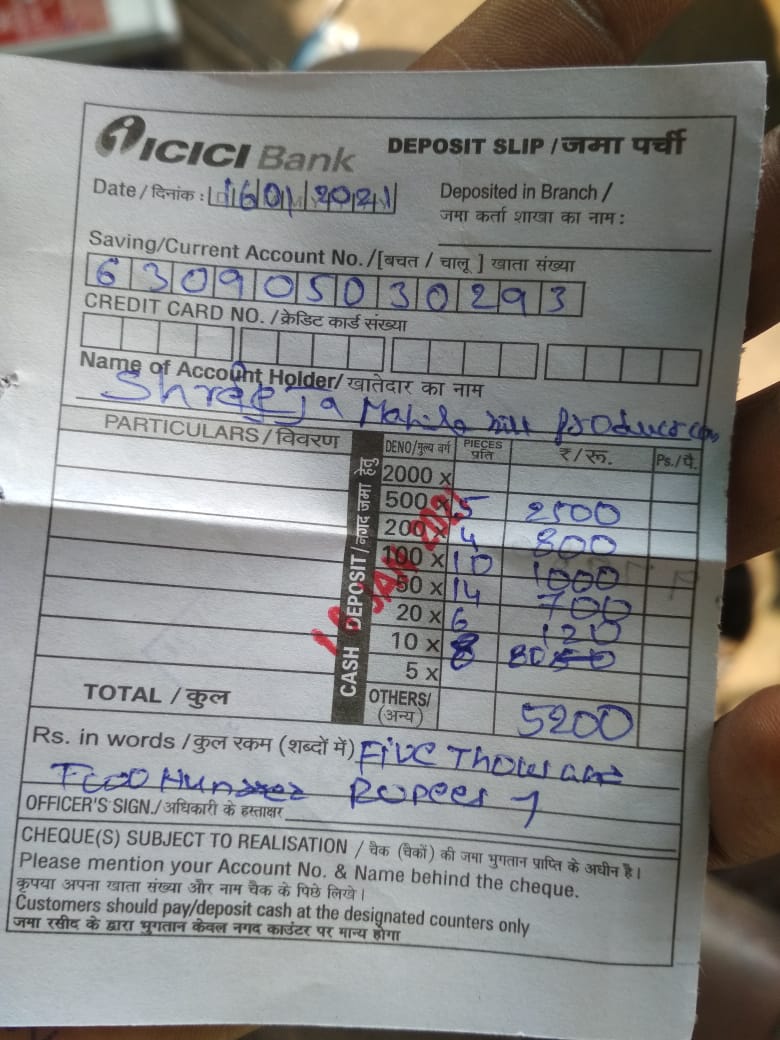 ICICI Bank DEPOSIT SLIP / जमा पर्ची
Date / दिनांक : 16 01 2021 Deposited in Branch /
जमा कर्ता शाखा का नाम :
Saving/Current Account No. /[बचत / चालू ] खाता संख्या
630905030293
CREDIT CARD NO. / क्रेडिट कार्ड संख्या
Name of Account Holder/ खातेदार का नाम
Shreeja Mahila Milk Producer com
PARTICULARS / विवरण CASH DEPOSIT / नगद जमा हेतु DENO/मूल्य वर्ग PIECES प्रति ₹/रू. Ps./पै.
2000 x
500 x 5 2500
200 x 4 800
100 x 10 1000
50 x 14 700
20 x 6 120
10 x 8 80
5 x
JAN 2021
TOTAL / कुल OTHERS/ (अन्य) 5200
Rs. in words / कुल रकम (शब्दों में) Five Thousand
Hundred Rupees
OFFICER'S SIGN./ अधिकारी के हस्ताक्षर
CHEQUE(S) SUBJECT TO REALISATION / चैक (चैकों) की जमा भुगतान प्राप्ति के अधीन है।
Please mention your Account No. & Name behind the cheque.
कृपया अपना खाता संख्या और नाम चैक के पिछे लिखे।
Customers should pay/deposit cash at the designated counters only
जमा रसीद के द्वारा भुगतान केवल नगद काउंटर पर मान्य होगा